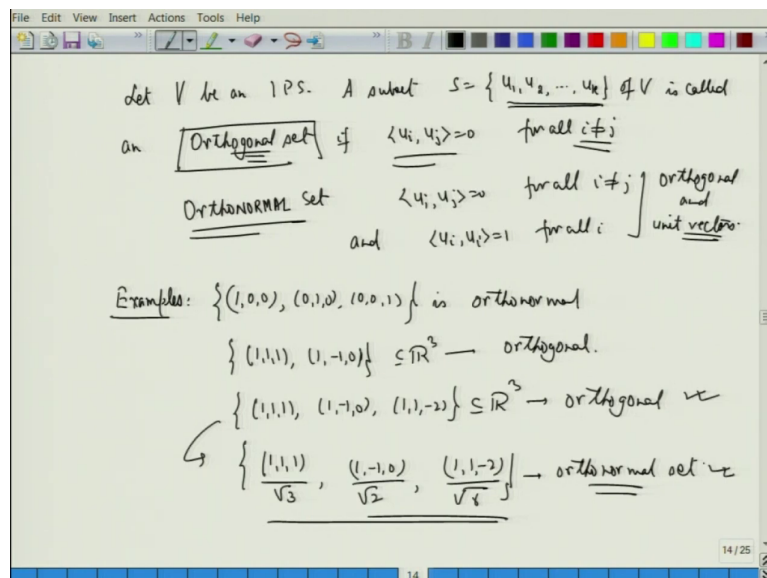 File Edit View Insert Actions Tools Help
Let V be an IPS. A subset S = { u₁, u₂, ..., uₖ } of V is called
an Orthogonal set if <uᵢ, uⱼ> = 0 for all i ≠ j
OrthoNORMAL set <uᵢ, uⱼ> = 0 for all i ≠ j
and <uᵢ, uᵢ> = 1 for all i
orthogonal
and
unit vectors.
Examples: {(1,0,0), (0,1,0), (0,0,1)} is orthonormal
{ (1,1,1), (1,-1,0)} ⊆ ℝ³ — orthogonal.
{ (1,1,1), (1,-1,0), (1,1,-2)} ⊆ ℝ³ → orthogonal
{ (1,1,1)/√3, (1,-1,0)/√2, (1,1,-2)/√6 } → orthonormal set
14 / 25
14